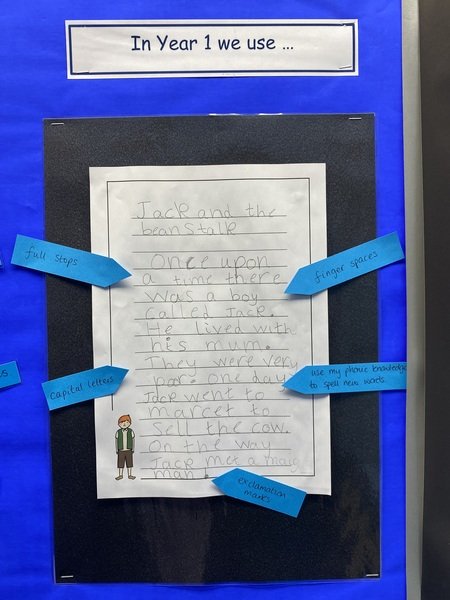 In Year 1 we use ...
Jack and the
beanstalk
once upon
a time there
was a boy
called Jack.
He lived with
his mum.
They were very
por. one day
Jack went to
marcet to
sell the cow.
On the way
Jack met a magic
man.
full stops
finger spaces
capital letters
use my phonic knowledge
to spell new words.
exclamation
marks